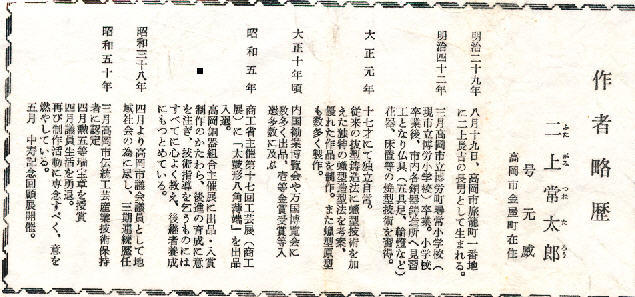 作者略歴
二上常太郎
ふた がみ つね た ろう
号 元威
高岡市金屋町在住
明治二十九年
八月十九日、高岡市旅籠町一番地
に二上長吉の長男として生まれる。
明治四十二年
三月高岡市立博労町尋常小学校(
現市立博労小学校)卒業。小学校
卒業後、市内各銅器鋳造所へ見習
工となり仏具(五具足、輪燈など)
花器、床置等の焼型技術を習得。
大正元年
十七才にて独立自営。
従来の焼型鋳造法に蠟型技術を加
えた独特の蠟型鋳造法を考案、
優れた作品を制作。また蠟型原型
も数多く製作。
大正十年頃
内国勧業博覧会や万国博覧会に
数多く出品、一等金賞受賞等入
選多数に及ぶ
昭和五年
商工省主催第十七回工芸展(商工
展)に「大菱形八角端端」を出品
入選。
高岡銅器組合主催展に出品・入賞
制作のかたわら、後進の育成に意
を注ぎ、技術指導を乞うものには
すべてに心よく教え、後継者養成
にもつとめている。
昭和三十八年
四月より高岡市議会議員として地
域社会の為に尽し、三期連続歴任
昭和五十年
三月高岡市伝統工芸産業技術保持
者に認定
四月勲五等瑞宝章を授賞
四月議員生活を勇退。
再び制作活動に専念すべく、意を
燃やしている。
五月 中寿記念回顧展開催。